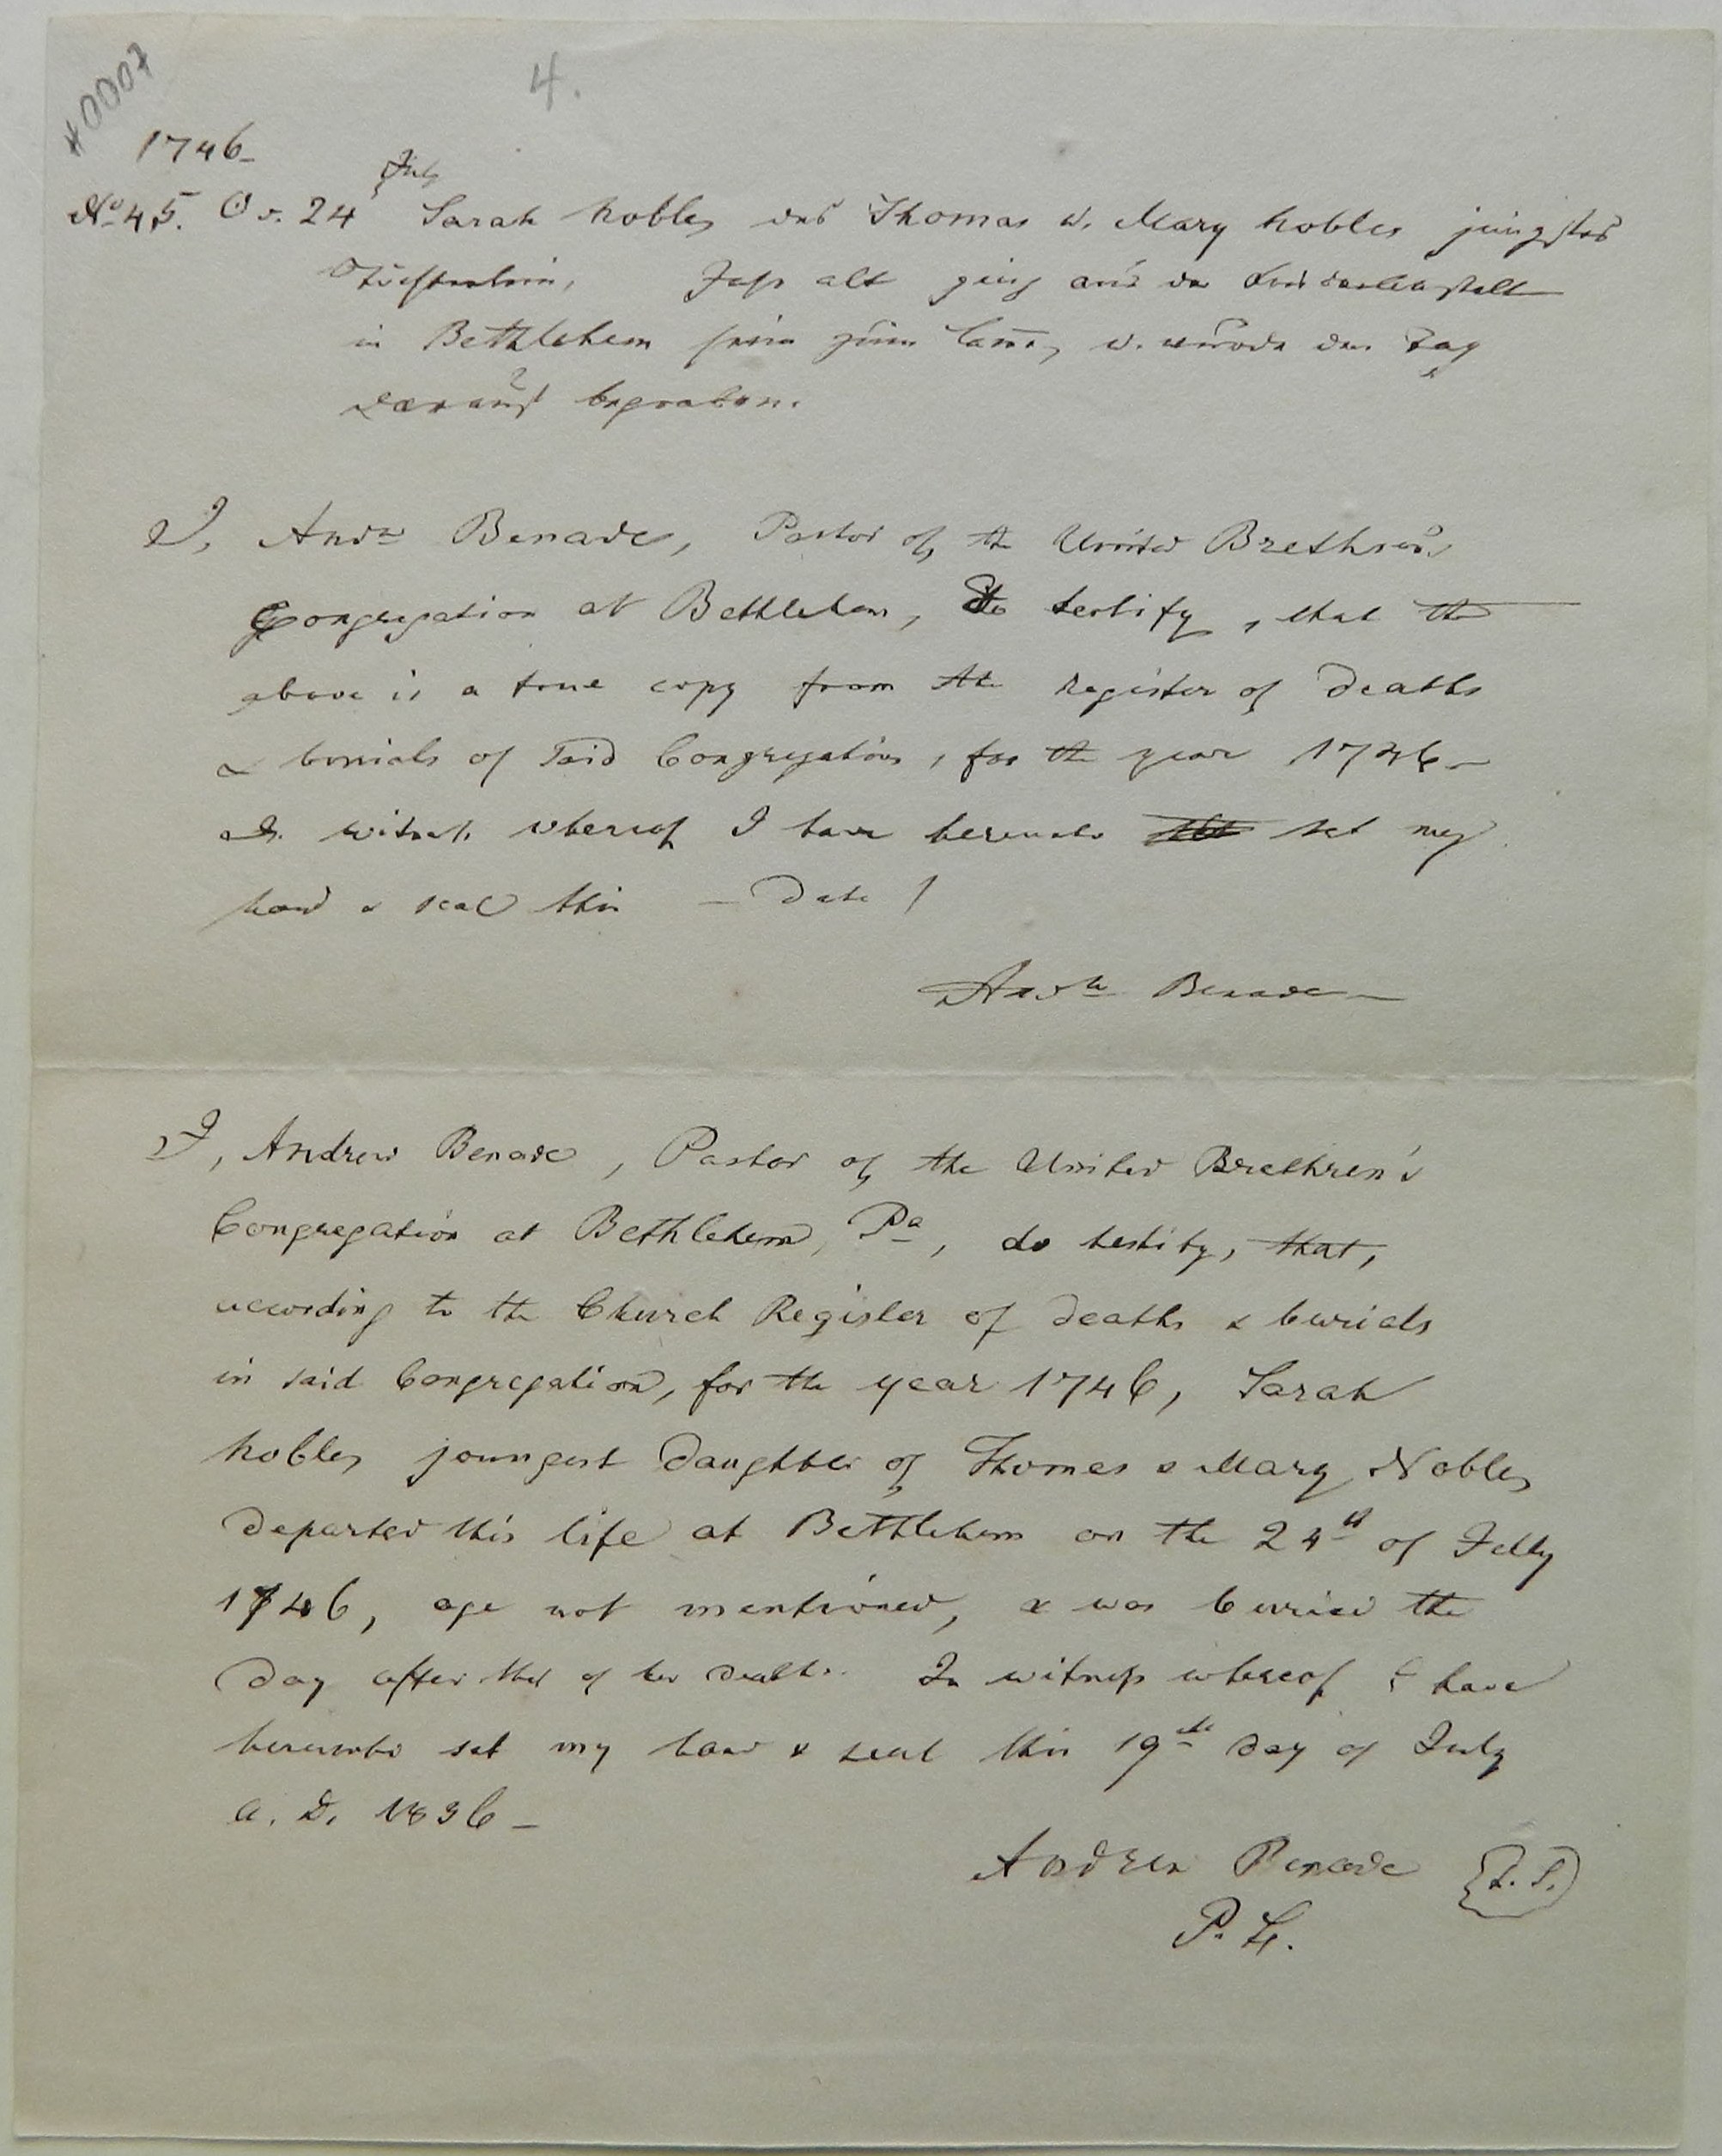 #0007
4.
1746
July
No 45. D. 24 Sarah Nobles des Thomas u. Mary Nobles jüngstes
Töchterlein, Jahr alt ging aus der Kinderanstalt
in Bethlehem heim zum Lamm, u. wurde den Tag
darauf begraben.
I, Andw Benade, Pastor of the United Brethren's
Congregation at Bethlehem, do testify, that the
above is a true copy from the register of deaths
& burials of said Congregation, for the year 1746 –
In witness whereof I have hereunto set my
hand & seal this – Date /
Andw Benade
I, Andrew Benade, Pastor of the United Brethren's
Congregation at Bethlehem, Pa, do testify, that,
according to the Church Register of deaths & burials
in said Congregation, for the year 1746, Sarah
Nobles youngest daughter of Thomas & Mary Nobles
departed this life at Bethlehem on the 24th of July
1746, age not mentioned, & was buried the
day after that of her death. In witness whereof I have
hereunto set my hand & seal this 19th day of July
A. D. 1836 –
Andrew Benade {L. S.}
P. L.